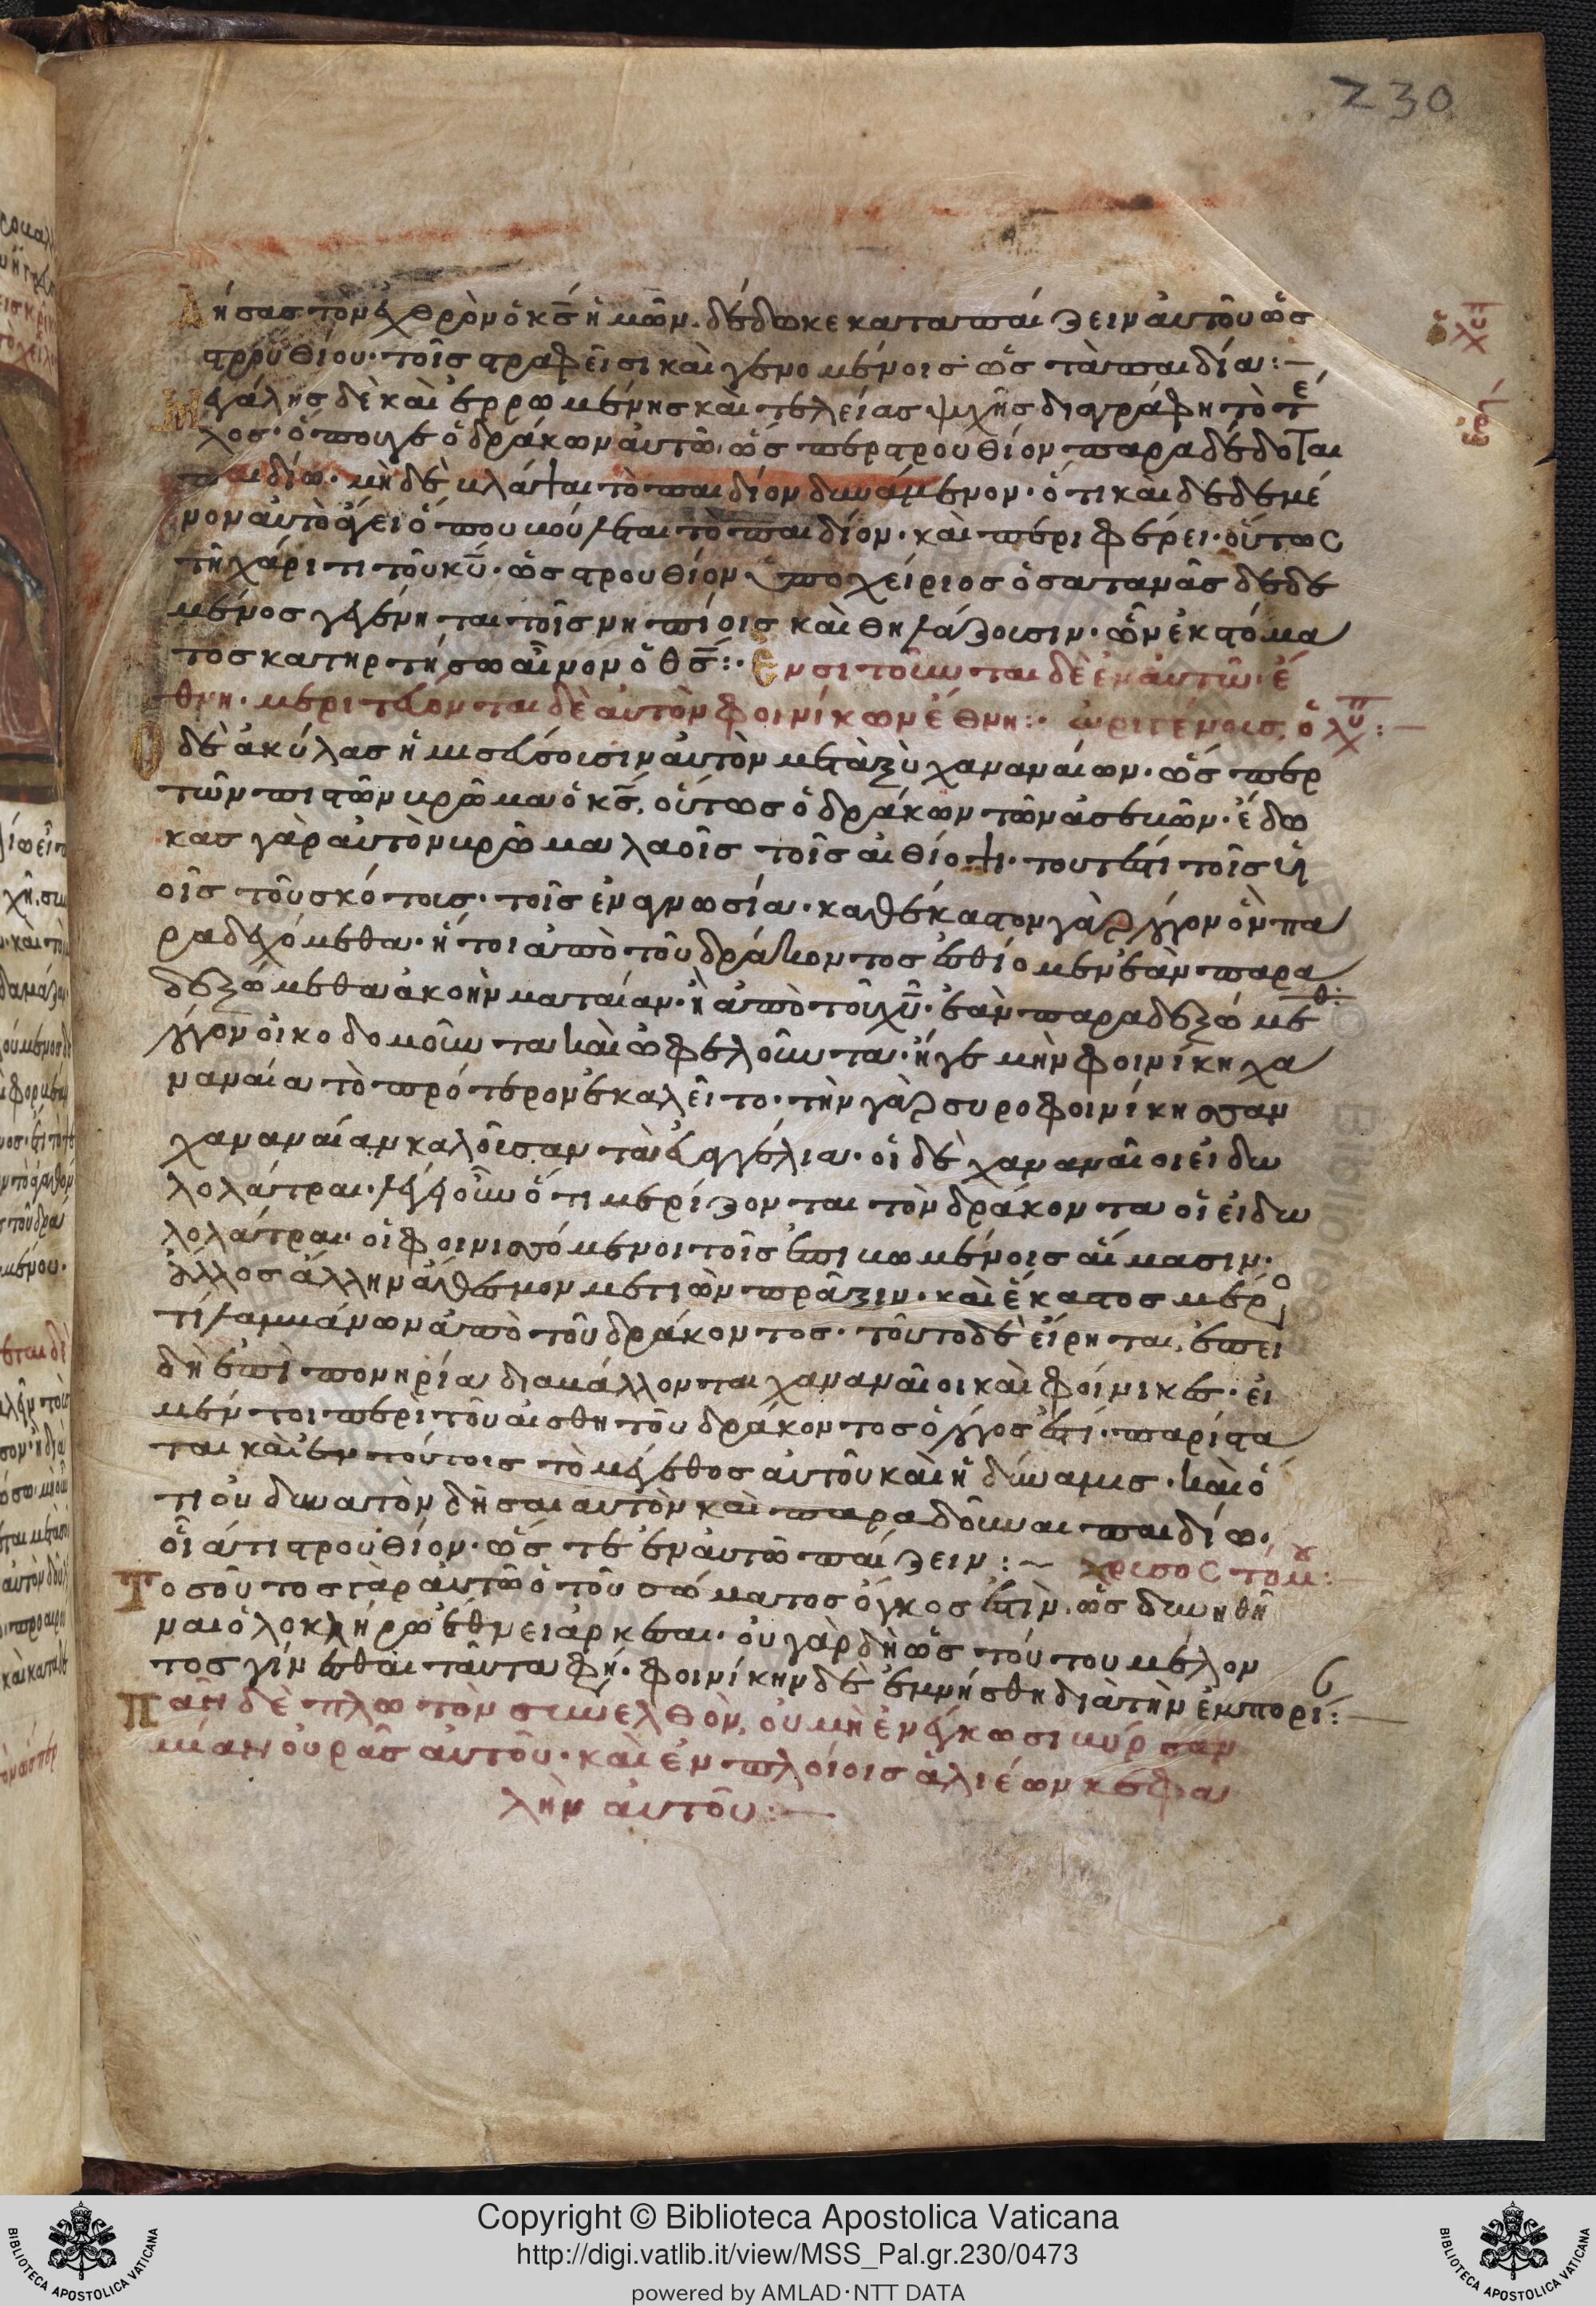 230
Δήσας τὸν ἐχθρὸν ὁ κ̅ς̅ ἡμῶν. δέδωκε καταπαίζειν αὐτοῦ ὡς
στρουθίου· τοῖς στραφεῖσι καὶ γενομένοις ὡς τὰ παιδία:—
Μεγάλης δὲ καὶ ἐρρωμένης καὶ τελείας ψυχῆς διαγράφη τὸ τέ
λος· ὅπου γε ὁ δράκων αὐτῶ, ὥσπερ στρουθίον παραδέδοται
παιδίω· μὴ δὲ βλάψαι τὸ παιδίον δυνάμενον· ὅτι καὶ δεδεμέ
νον αὐτὸ ἄγει ὅπου βούλεται τὸ παιδίον· καὶ περιφέρει· οὕτως
τῆ χάριτι τοῦ κ̅υ̅· ὡς στρουθίον ὑποχείριος ὁ σατανᾶς δεδε
μένος γεγένηται τοῖς νηπίοις καὶ θηλάζουσιν· ὧν ἐκ στόμα
τος κατηρτήσω αἶνον ὁ θ̅ς̅:· Ἐνσιτοῦνται δὲ ἐν αὐτῶ· ἔ
θνη· μεριτεύονται δὲ αὐτὸν φοινίκων ἔθνη:·
Ὁ δὲ ἀκύλας ἡμισεύσουσιν αὐτὸν μεταξὺ χαναναίων· ὥσπερ
τῶν πιστῶν βρῶμα ὁ κ̅ς̅, οὕτως ὁ δράκων τῶν ἀσεβῶν· ἔδω
κας γὰρ αὐτὸν βρῶμα λαοῖς τοῖς αἰθίοψι· τουτέστι τοῖς υἱ
οῖς τοῦ σκότους· τοῖς ἐν ἀγνωσία· καθέκαστον γὰρ λόγον ὃν πα
ραδεχόμεθα· ἤτοι ἀπὸ τοῦ δράκοντος ἐσθίομεν ἐὰν παρα
δεξώμεθα ἀκοὴν ματαίαν· ἢ ἀπὸ τοῦ χ̅υ̅· ἐὰν παραδεξώμεθ
λόγον οἰκοδομοῦντα καὶ ὠφελοῦντα· ἥγε μὴν φοινίκη χα
ναναία τὸ πρότερον ἐκαλεῖτο· τὴν γὰρ συροφοινίκησσαν
χαναναίαν καλοῦσαν τὰ εὐαγγέλια· οἱ δὲ χαναναῖοι εἰδω
λολάτραι· λέγει οὖν ὅτι μερίζονται τὸν δράκοντα οἱ εἰδω
λολάτραι· οἱ φοινισσόμενοι τοῖς ἐπι βωμένοις αἵμασιν·
ἄλλος ἄλλην ἄθεσμον μετιὼν πρᾶξιν· καὶ ἕκαστος μερ
τι λαμβάνων ἀπὸ τοῦ δράκοντος· τοῦτο δὲ εἴρηται, ἐπει
δὴ ἐπὶ πονηρία διαβάλλονται χαναναῖοι καὶ φοίνικες· εἰ
μέντοι περὶ τοῦ αἰσθητοῦ δράκοντος ὁ λόγος ἐστί· παρίστα
ται κἀν τούτοις τὸ μέγεθος αὐτοῦ καὶ ἡ δύναμις· καὶ ὅ
τι οὐ δυνατὸν δῆσαι αὐτὸν καὶ παραδοῦναι παιδίω·
οἷά τι στρουθίον· ὥστε ἐν αὐτῶ παίζειν:— χρυσοστόμ:
Τοσοῦτος γὰρ αὐτῶ ὁ τοῦ σώματος ὄγκος ἐστὶν, ὡς δυνηθῆ
ναι ὁλοκλήρω ἔθνει ἀρκέσαι· οὐ γὰρ δὴ ὡς τούτου μέλλον
τος γίνεσθαι ταῦτα φη· φοινίκην δὲ ἐμνήσθη διὰ τὴν ἐμπορί:—
Πᾶν δὲ πλωτὸν συνελθὸν, οὐ μὴ ἐνέγκωσι βύρσαν
μίαν οὐρᾶς αὐτοῦ· καὶ ἐν πλοίοις ἁλιέων κεφα
λὴν αὐτοῦ:—
Copyright © Biblioteca Apostolica Vaticana
http://digi.vatlib.it/view/MSS_Pal.gr.230/0473
powered by AMLAD·NTT DATA
BIBLIOTECA APOSTOLICA VATICANA
BIBLIOTECA APOSTOLICA VATICANA